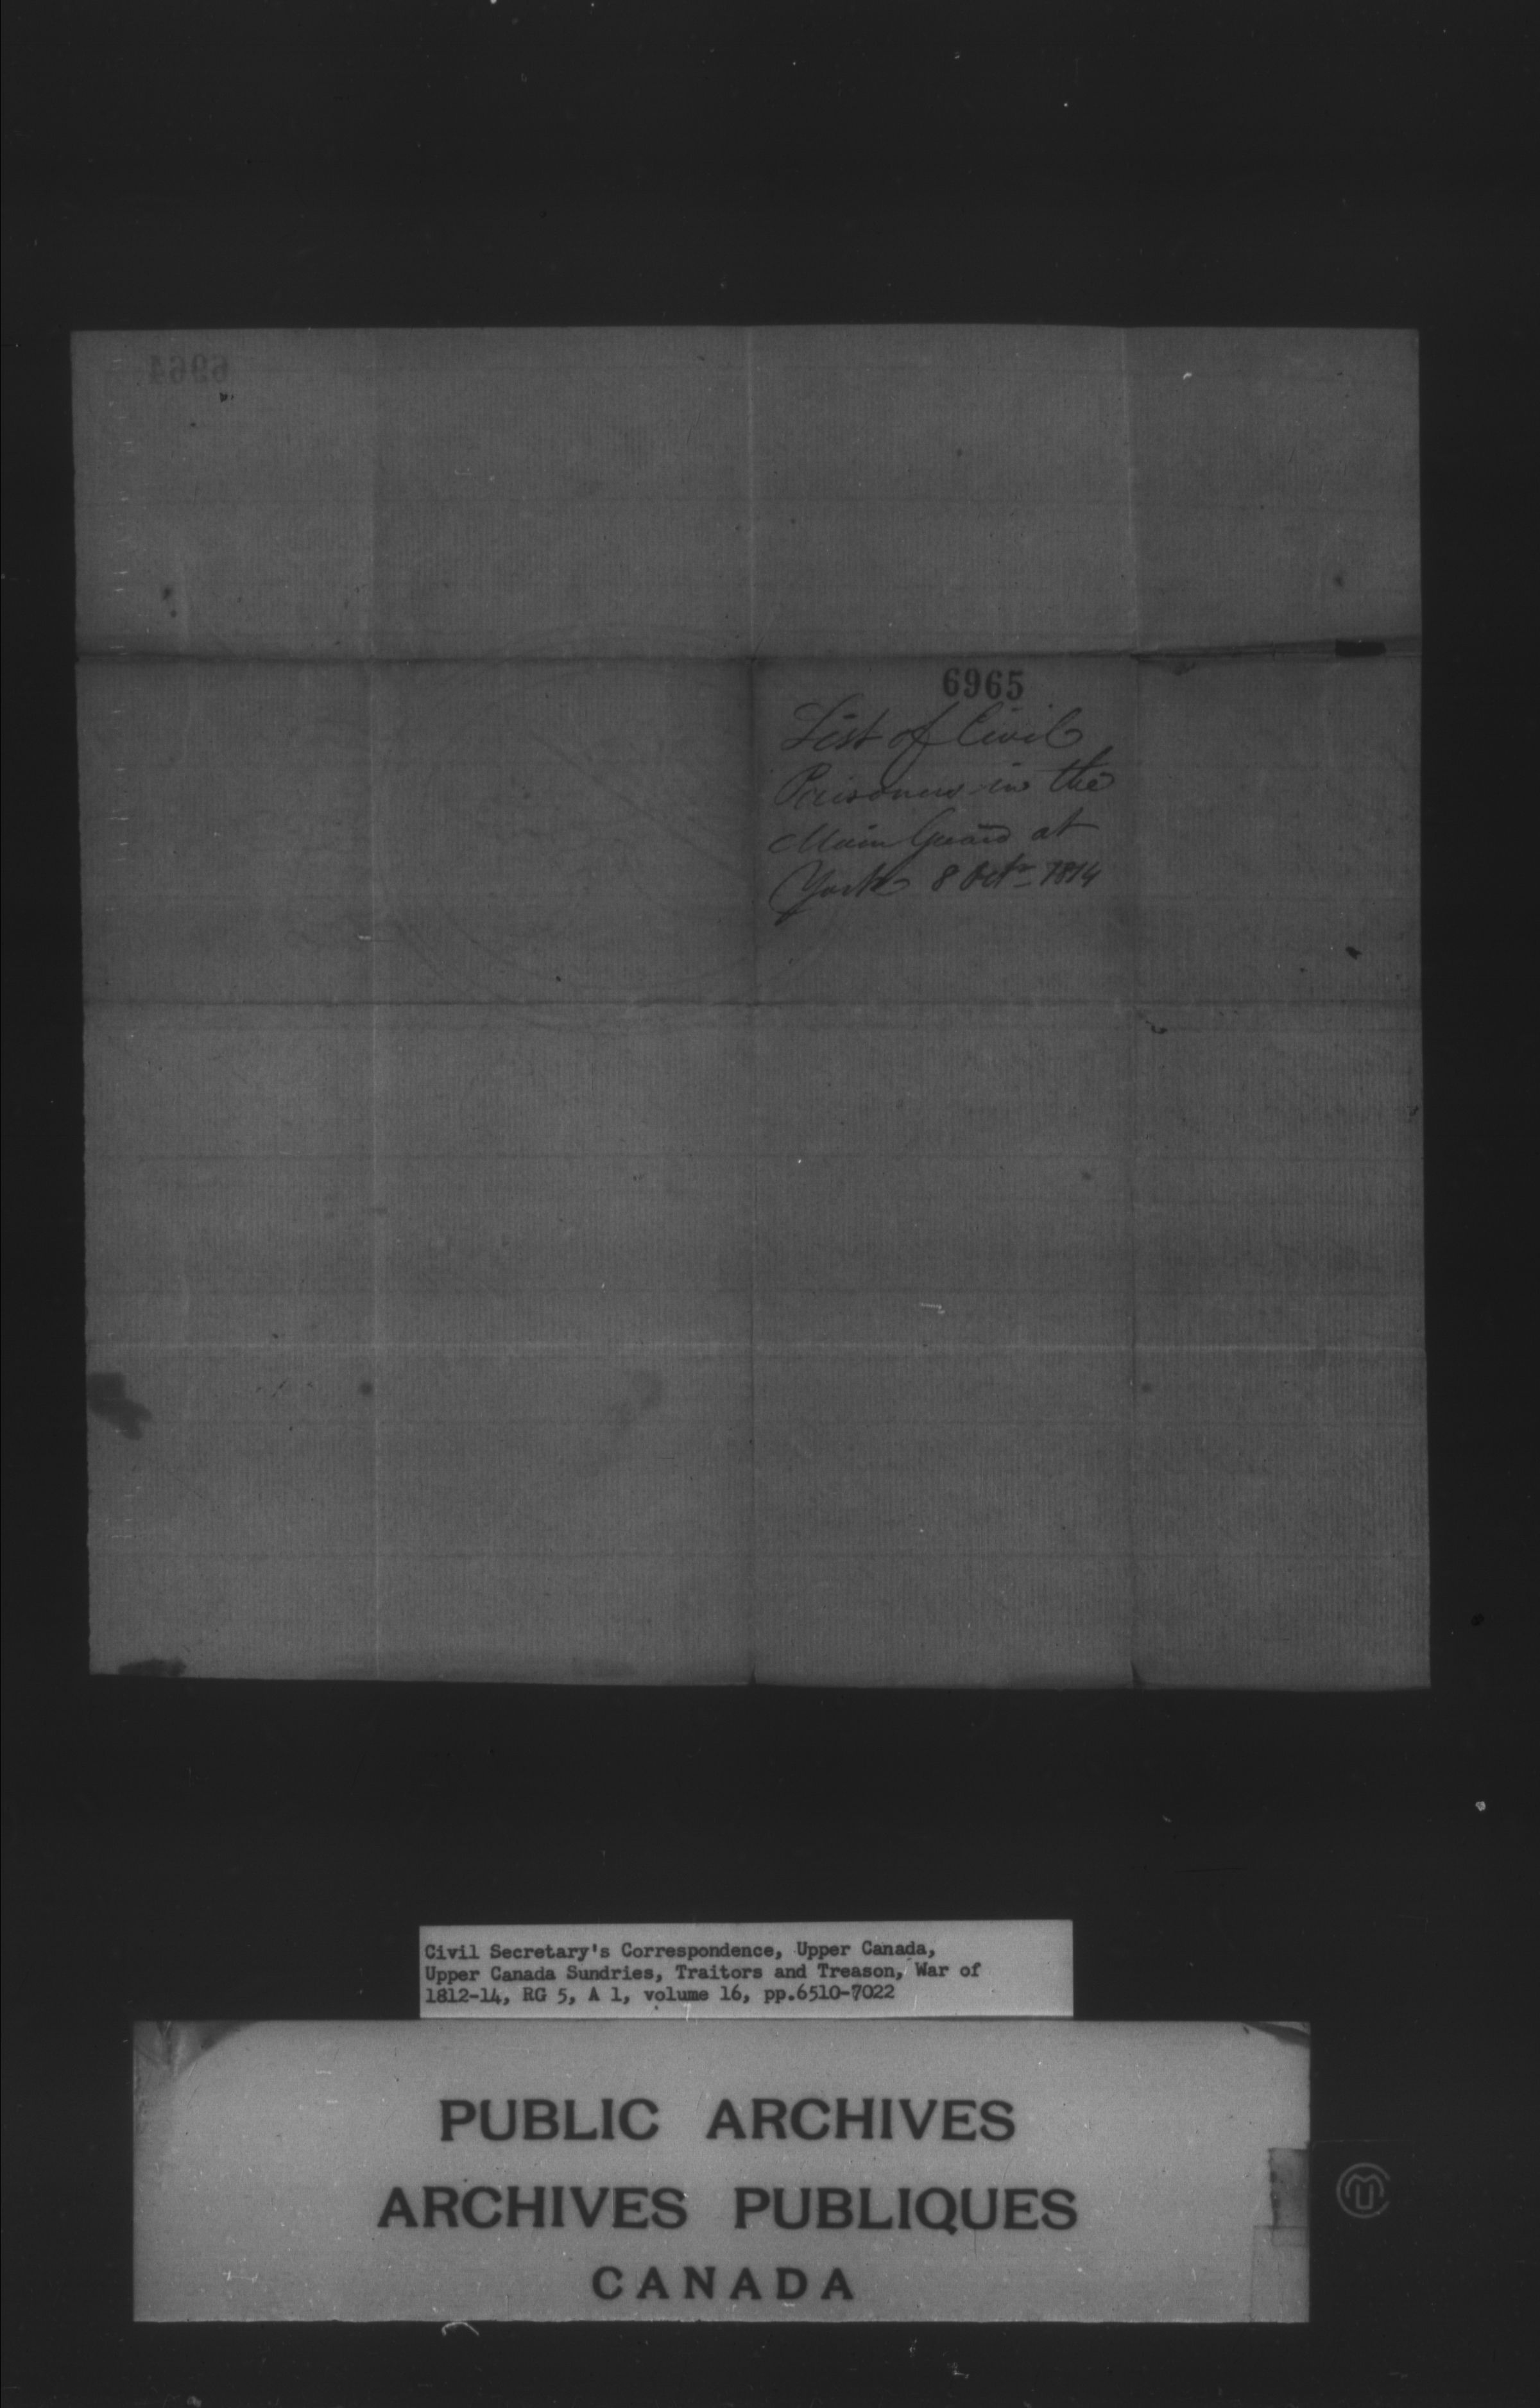 6964
6965
List of Civil
Prisoners in the
Main Guard at
York 8 Octr 1814
Civil Secretary's Correspondence, Upper Canada,
Upper Canada Sundries, Traitors and Treason, War of
1812-14, RG 5, A 1, volume 16, pp.6510-7022
PUBLIC ARCHIVES
ARCHIVES PUBLIQUES
CANADA